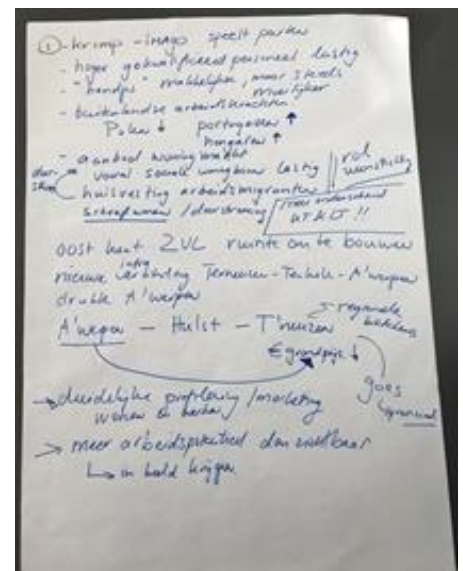 ① - krimp - imago speelt parten
- hoger gekwalificeerd personeel lastig
- "handjes" makkelijker, maar steeds
moeilijker
- buitenlandse arbeidskrachten
Polen ↓ portugezen ↑
hongaren ↑
- aanbod woningmarkt
vooral sociale woningbouw lastig
rol
huisvesting arbeidsmigranten
scheefwonen / doorstroming
meer onderscheid
KT & LT !!
oost heeft ZVL ruimte om te bouwen
nieuwe verbinding Terneuzen - - A'werpen
drukte A'werpen
A'werpen - Hulst - T'neuzen
regionale
€ grondprijs ↓
goes
→ duidelijke profilering / marketing
wonen &
→ meer arbeidspotentieel dan zichtbaar
↳ in beeld krijgen